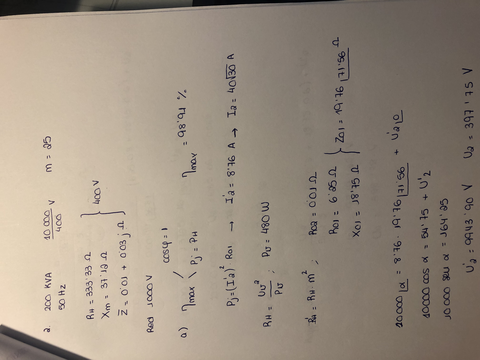 2. 200 KVA 10000/400 V m = 25
50 Hz
RH = 333'33 Ω
Xm = 37'12 Ω } 400 V
Z̅ = 0'01 + 0'03 j Ω
Red 1000 V
cosφ = 1
a) ηmax < Pj = PH ηmax = 98'91 %
Pj = (I'2)² R01 → I'2 = 8'76 A → I2 = 40√30 A
RH = Uv²/Pv ; Pv = 480 W
R'H = RH · m² ; R02 = 0'01 Ω
R01 = 6'25 Ω
X01 = 18'75 Ω } Z01 = 19'76 |71'56 Ω
10000 |α = 8'76 · 19'76 |71'56 + U'2 |0
10000 cos α = 54'75 + U'2
10000 sen α = 164'25
U'2 = 9943'90 V U2 = 397'75 V